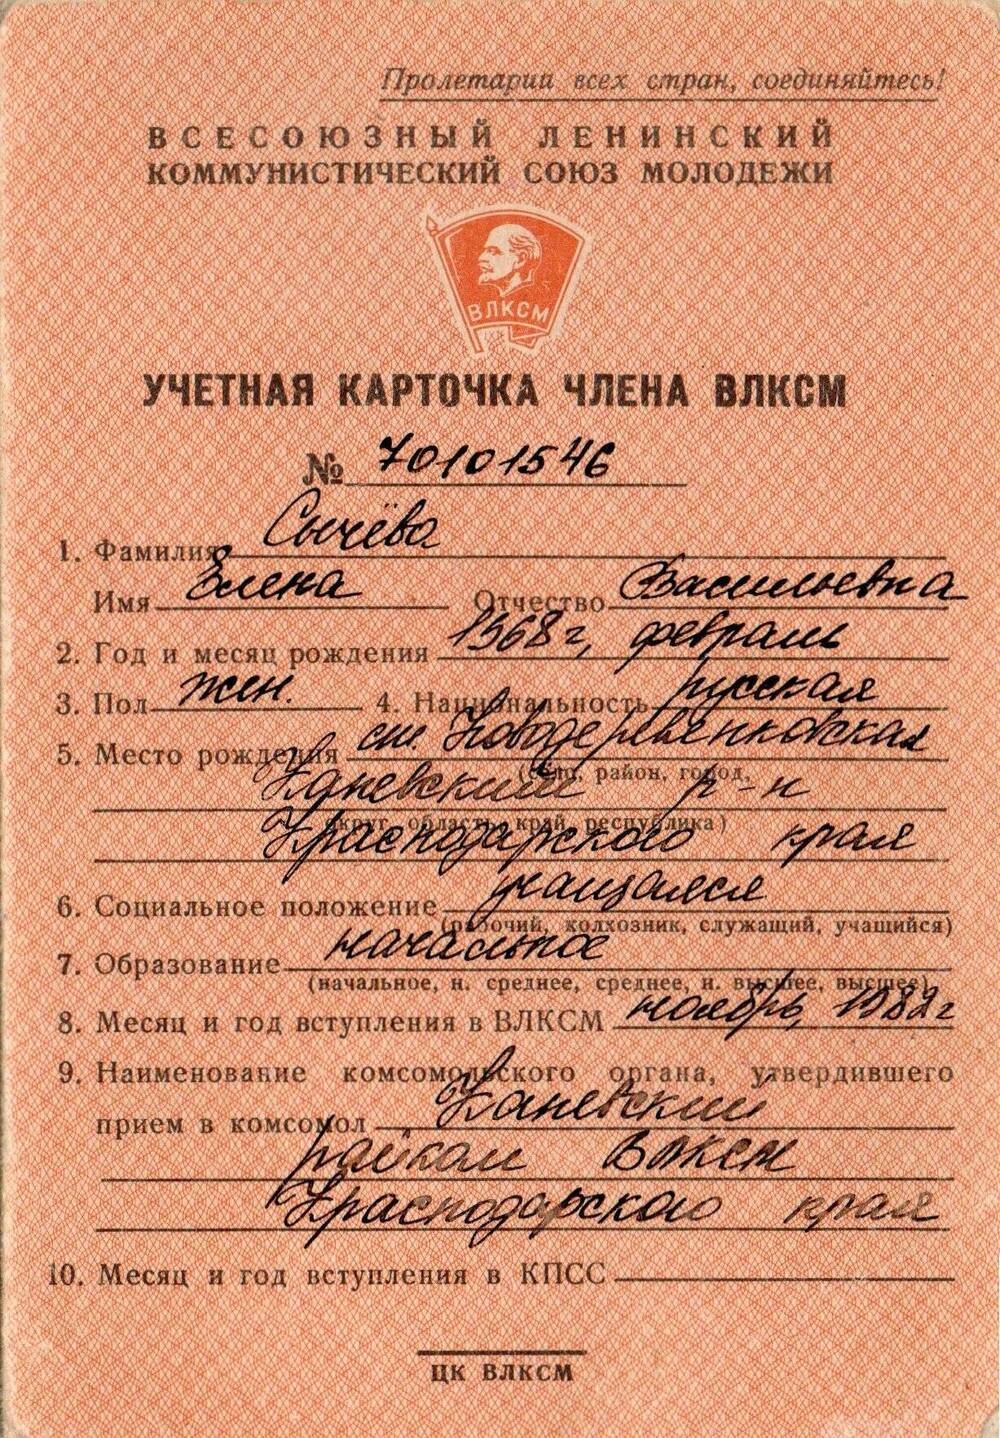 Пролетарии всех стран, соединяйтесь!
ВСЕСОЮЗНЫЙ ЛЕНИНСКИЙ
КОММУНИСТИЧЕСКИЙ СОЮЗ МОЛОДЕЖИ
ВЛКСМ
УЧЕТНАЯ КАРТОЧКА ЧЛЕНА ВЛКСМ
№ 70101546
1. Фамилия Сычёва
Имя Елена Отчество Васильевна
2. Год и месяц рождения 1968 г, февраль
3. Пол жен. 4. Национальность русская
5. Место рождения ст. Новодеревянковская
(село, район, город,
Каневский р-н
округ, область, край, республика)
Краснодарского края
6. Социальное положение учащаяся
(рабочий, колхозник, служащий, учащийся)
7. Образование начальное
(начальное, н. среднее, среднее, н. высшее, высшее)
8. Месяц и год вступления в ВЛКСМ ноябрь, 1982 г
9. Наименование комсомольского органа, утвердившего
прием в комсомол Каневский
райком ВЛКСМ
Краснодарского края
10. Месяц и год вступления в КПСС
ЦК ВЛКСМ